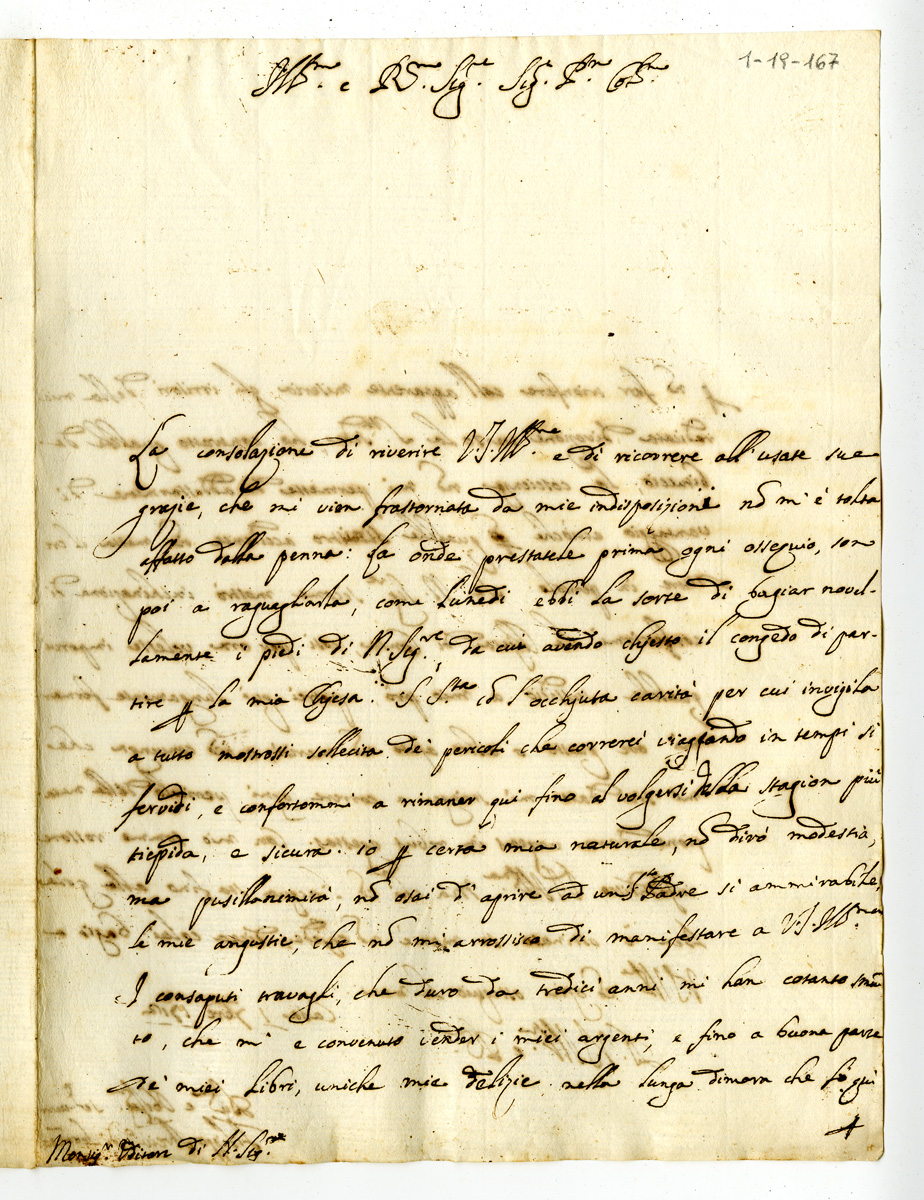 1-19-167
Ill.mo e R.mo Sig.re Sig.re P.ron Col.mo
La consolazione di riverire V.S.Ill.ma e di ricorrere all'usate sue
grazie, che mi vien frastornata da mie indisposizioni nõ m'è tolta
affatto dalla penna: La onde prestatele prima ogni ossequio, son
poi a raguagliarla, come Lunedi ebbi la sorte di bagiar novel-
lamente i piedi di N. Sig.re, da cui avendo chjesto il congedo di par-
tire ꝑ la mia Chjesa: S. S.ta cõ l'occhjuta carità per cui invigila
a tutto mostrossi sollecita de' pericoli che correrei viaggando in tempi si
fervidi, e confortommi a rimaner qui fino al volgersi della stagion più
tiepida, e sicura. io ꝑ certa mia naturale, nõ dirò modestia,
ma pusillanimità, nõ osai d'aprire ad un S.to Padre si ammirabile,
le mie angustie, che nõ mi arrossisco di manifestare a V.S.Ill.ma
I consaputi travagli, che duro da tredici anni mi han cotanto
to, che m'è convenuto vender i miei argenti, e fino a buona parte
de' miei libri, uniche mie delizie nella lunga dimora che fò qui
ꝑ
Monsig.r Uditore di N. Sig.re